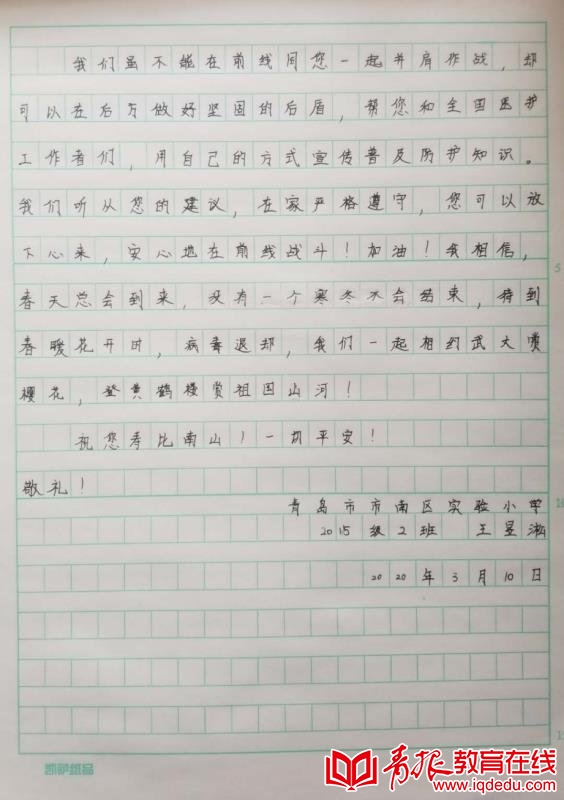 我们虽不能在前线同您一起并肩作战，却
可以在后方做好坚固的后盾，帮您和全国医护
工作者们，用自己的方式宣传普及防护知识。
我们听从您的建议，在家严格遵守，您可以放
下心来，安心地在前线战斗！加油！我相信，
春天总会到来，没有一个寒冬不会结束，待到
春暖花开时，病毒退却，我们一起相约武大赏
樱花，登黄鹤楼赏祖国山河！
祝您寿比南山！一切平安！
敬礼！
青岛市市南区实验小学
2015级2班 王昱淞
2020年3月10日
5
凯萨纸品
青报教育在线
www.iqdedu.com